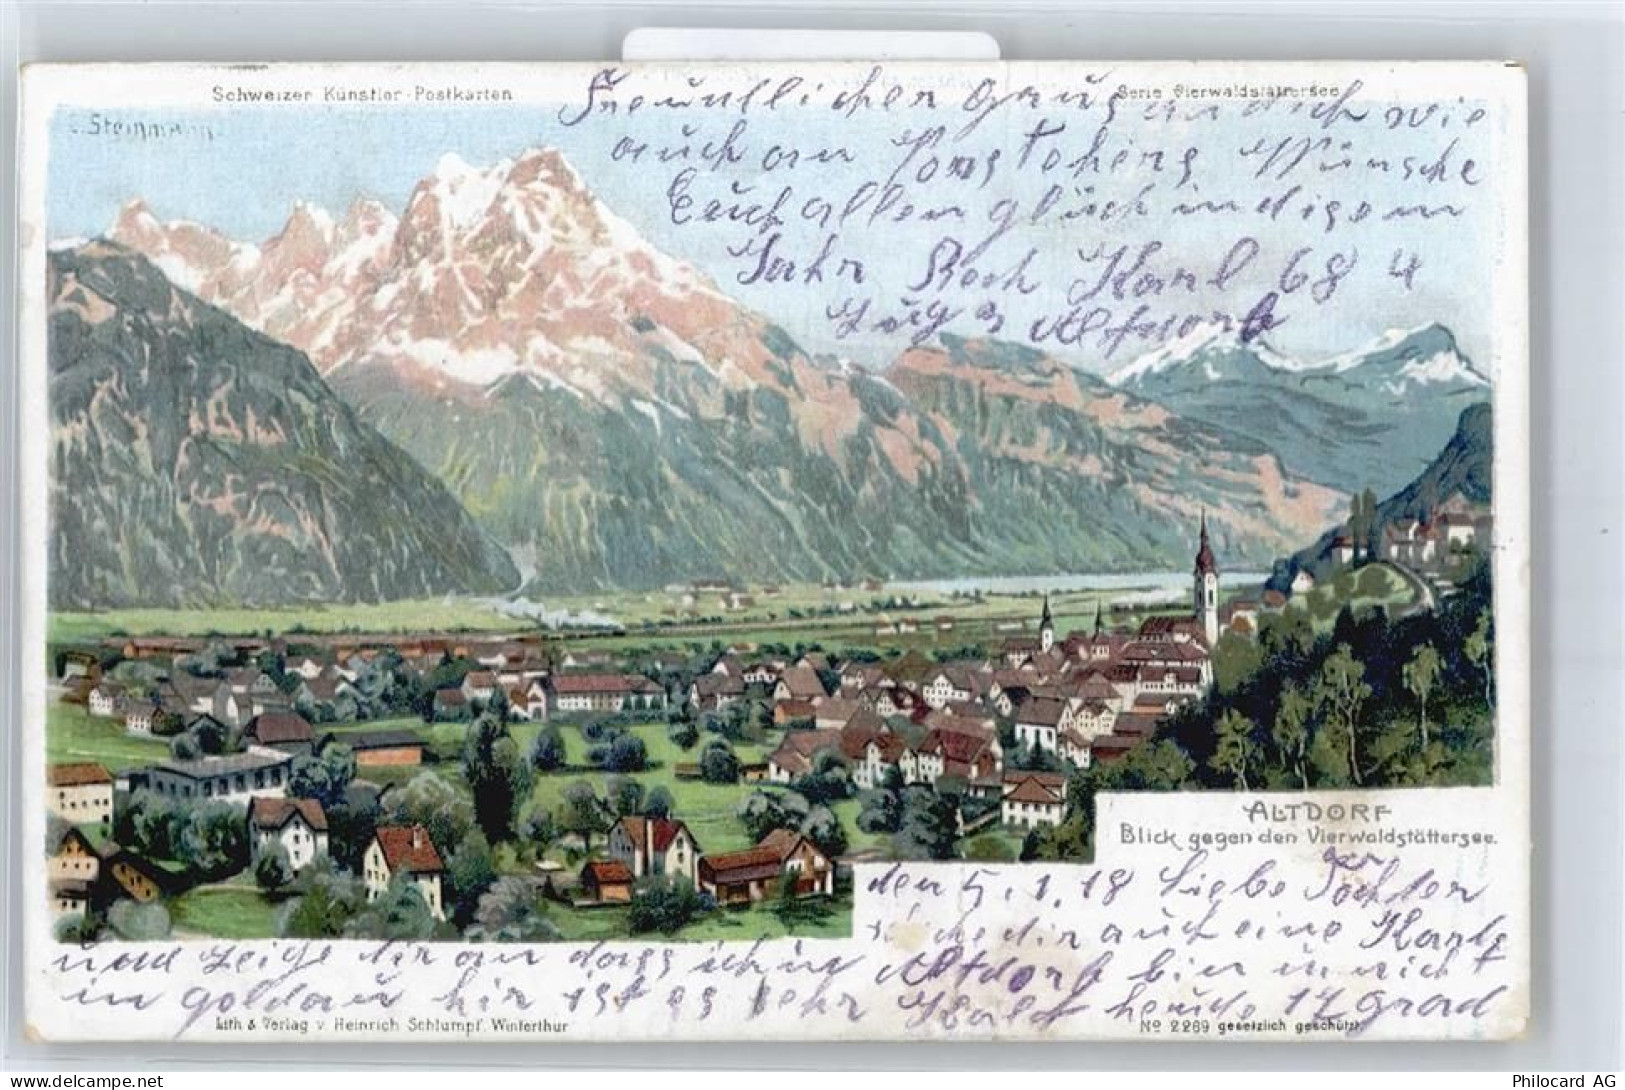 Schweizer Künstler-Postkarten
Serie Vierwaldstättersee
E. Steinmann
Freuntlichen Grus an dich wie
auch an Wünsche
Euch allen glück in disem
Jahr Koch Karl 68 4
Zug 3 Altdorf
ALTDORF
Blick gegen den Vierwaldstättersee.
den 5.1.18 Liebe Tochter
dir auch eine Karte
und zeige dir an dass ich in Altdorf bin u nicht
in goldau hir ist es sehr Kalt heude 17 grad
Lith & Verlag v. Heinrich Schlumpf, Winterthur
No 2269 gesetzlich geschützt.
Philocard AG